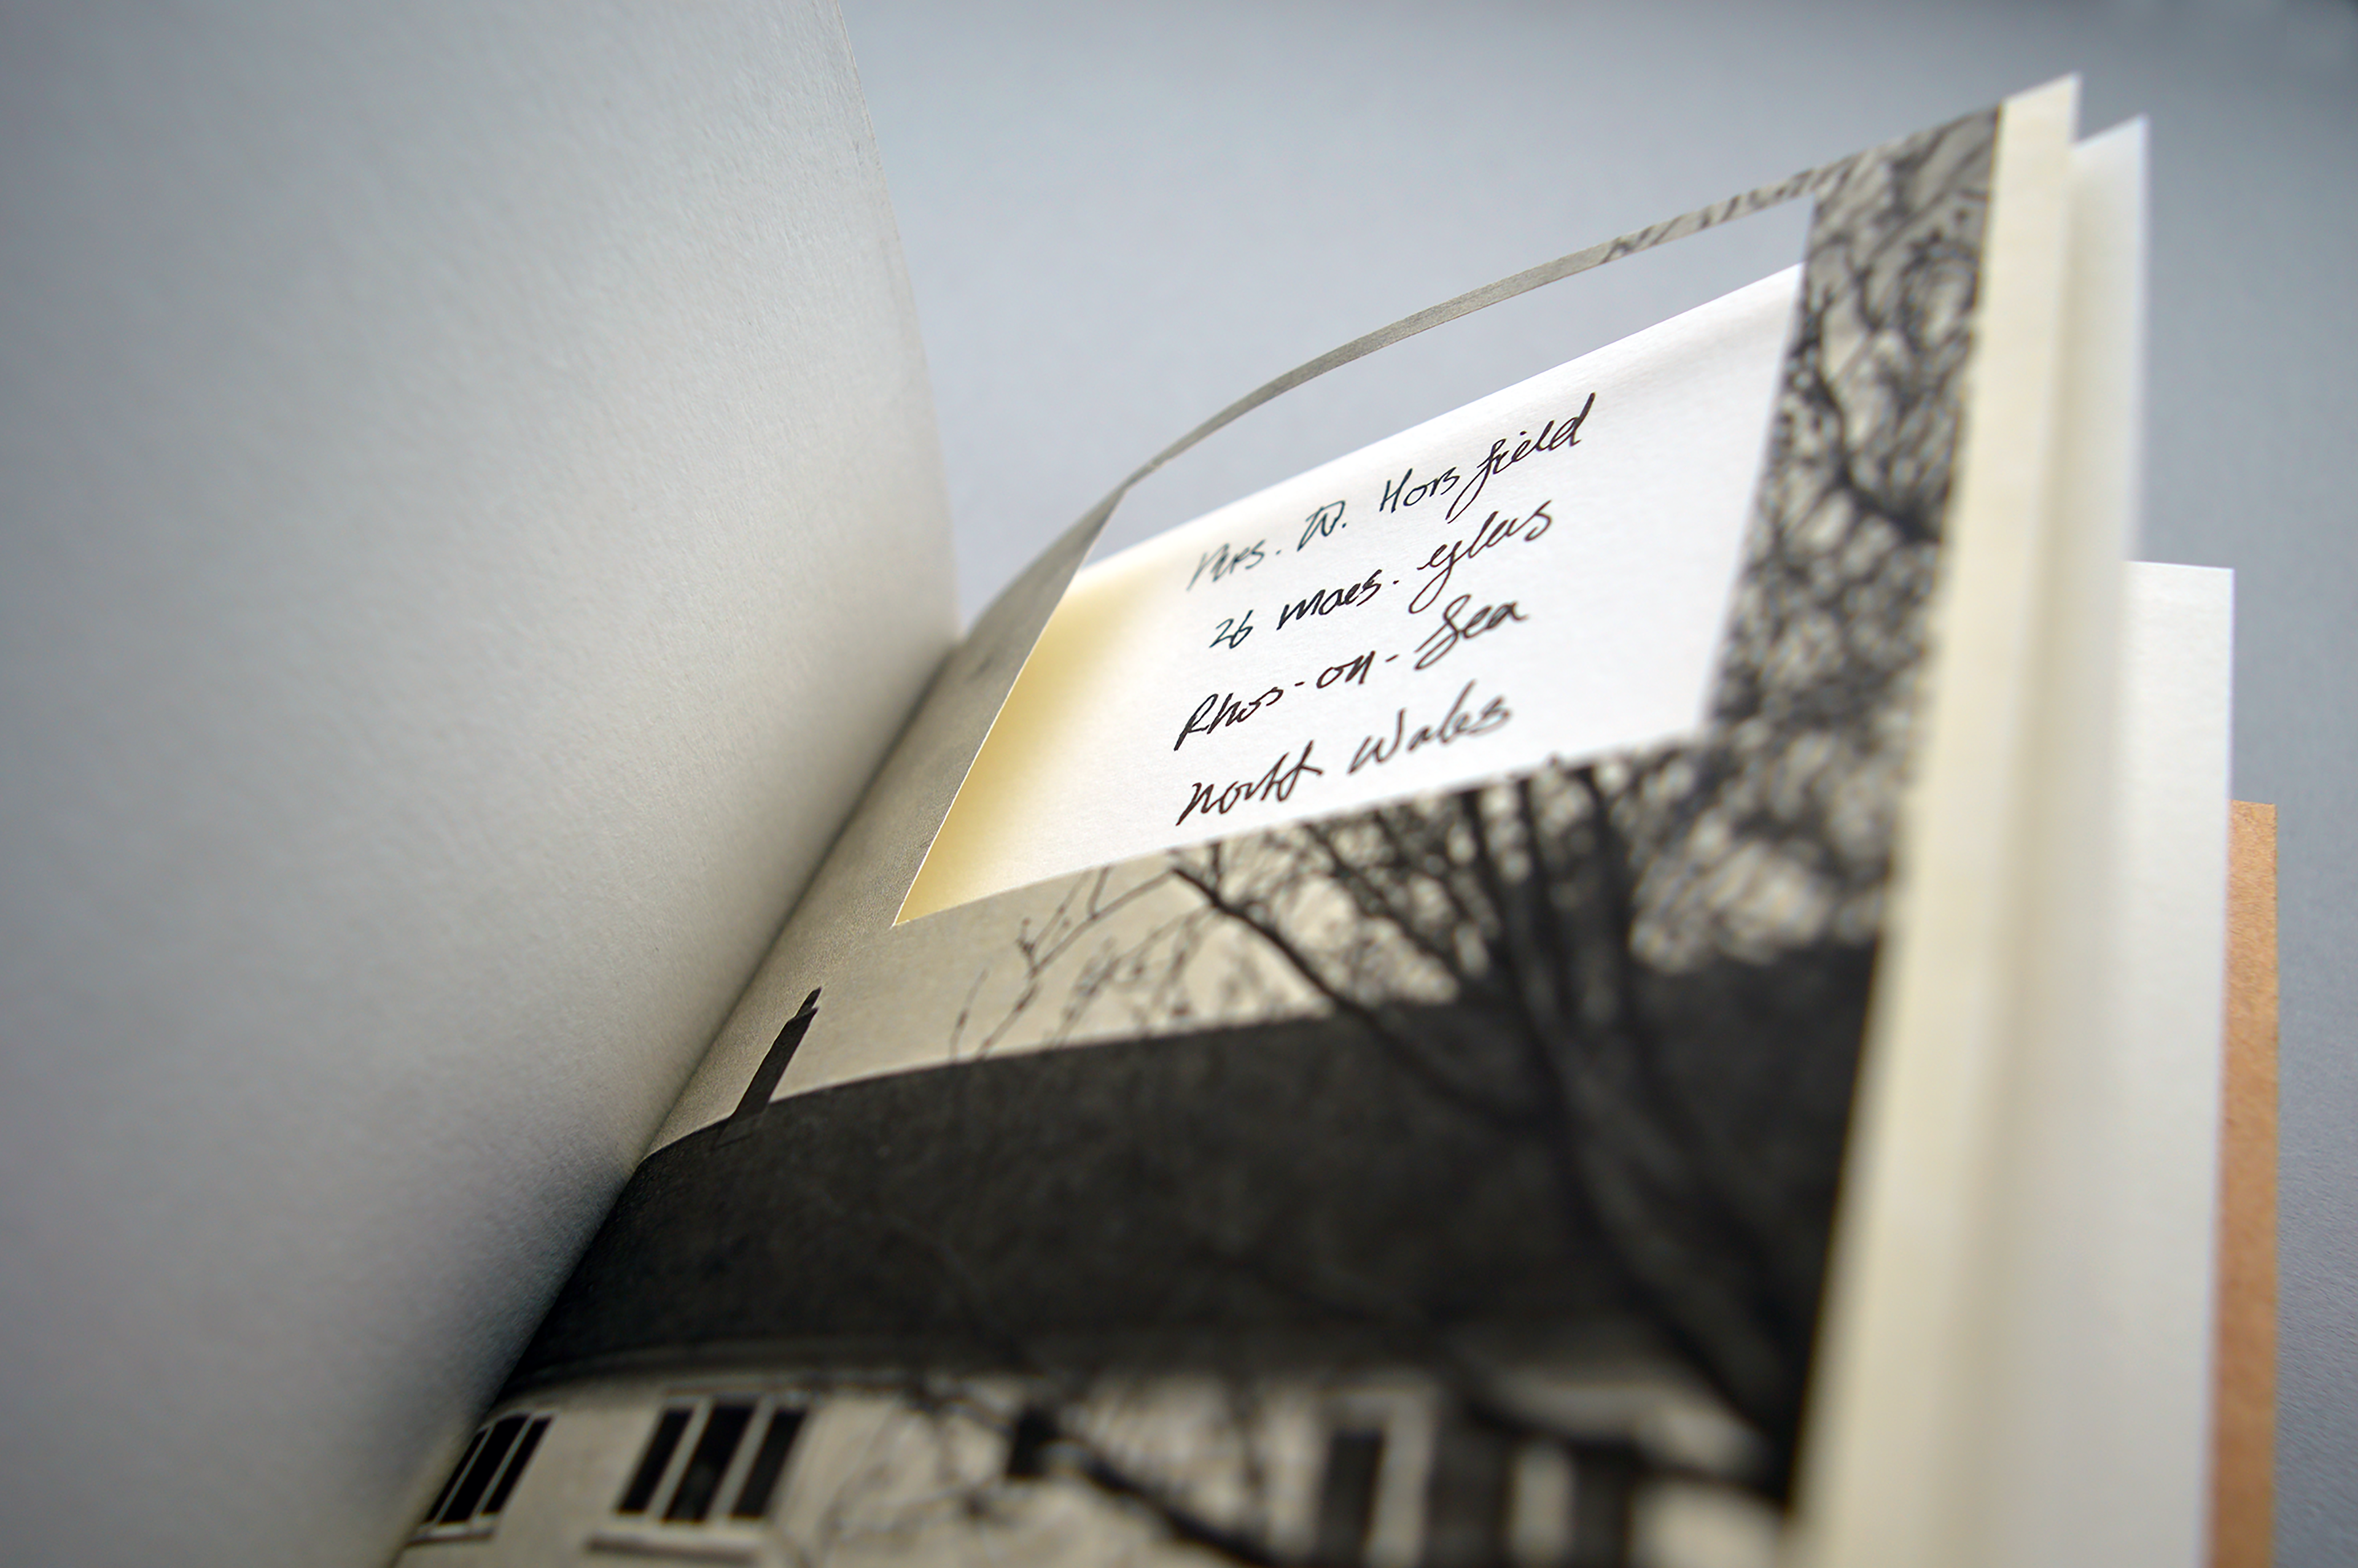 Mrs. W. Horsfield
26 maes-eglws
Rhos-on-Sea
North Wales